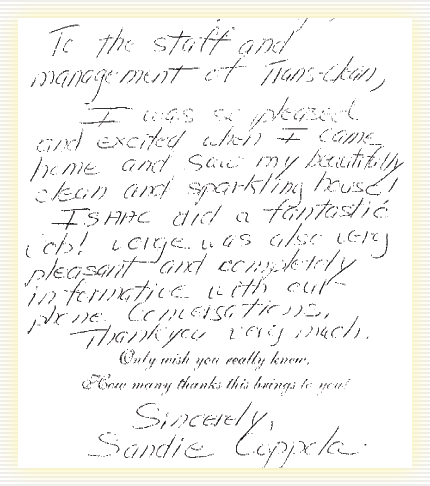 To the staff and
management of Trans-clean,
I was so pleased
and excited when I came
home and saw my beautifully
clean and sparkling house!
ISAAC did a fantastic
job! was also very
pleasant and completely
informative with our
phone conversations.
Thank you very much.
Only wish you really knew,
How many thanks this brings to you!
Sincerely,
Sandie Coppola